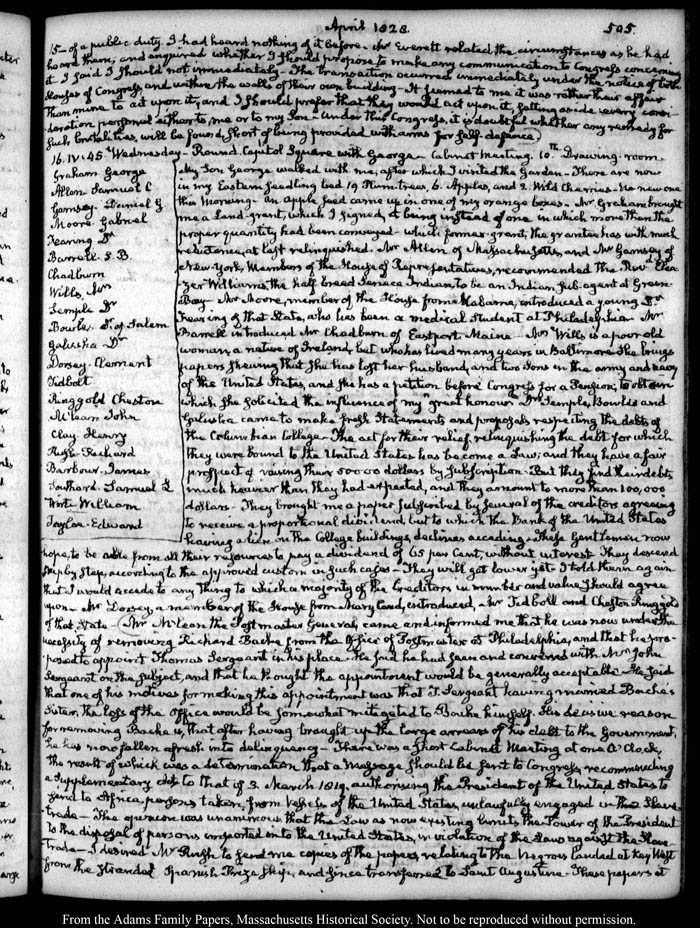 April 1828.
505.
15— of a public duty. I had heard nothing of it before. Mr Everett related the circumstances as he had
heard them, and enquired whether I should propose to make any communication to Congress concerning
it. I said I should not immediately— The transaction occurred immediately under the notice of both
Houses of Congress, and within the walls of their own building— It seemed to me it was rather their affair
than mine to act upon it, and I should prefer that they would act upon it, setting aside every consi-
deration personal either to me or to my Son— Under this Congress, it is doubtful whether any remedy for
such brutalities, will be found, short of being provided with arms for self-defence
16. IV:45 Wednesday— Round Capitol Square with George— Cabinet Meeting. 10th Drawing-room.
Graham George
Allen Samuel C
Garnsey. Daniel G
Moore. Gabriel
Fearing Dr
Barrell. G. B
Chadburn
Wills, Mrs
Semple Dr
Bowles. Dr of Salem
Galusha Dr
Dorsey. Clement
Tidbolt
Ringgold Cheston
McLean John
Clay Henry
Rush. Richard
Barbour. James
Southard. Samuel L
Wirt William
Taylor. Edward
My Son George walked with me, after which I visited the Garden— There are now
in my Eastern Seedling bed 19 Plum trees, 6. Apples, and 2 Wild Cherries— No new one
this Morning— An apple seed came up in one of my orange boxes— Mr Graham brought
me a Land-grant, which I signed, it being instead of one in which more than the
proper quantity had been conveyed— which former grant, the grantee has with much
reluctance, at last relinquished. Mr Allen of Massachusetts, and Mr Garnsey of
New York, Members of the House of Representatives, recommended the Revd Elea
zer Williams, the half breed Seneca Indian, to be an Indian, sub-agent at Green-
Bay— Mr Moore, member of the House from Alabama, introduced a young Dr
Fearing of that State, who has been a medical student at Philadelphia— Mr
Barrell introduced Mr Chadburn of Eastport. Maine— Mrs Wills is a poor old
woman, a native of Ireland, but who has lived many years in Baltimore. She brings
papers shewing that she has lost her husband, and two Sons in the army and navy
of the United States, and she has a petition before Congress for a Pension, to obtain
which she solicited the influence of my "great honour" Drs Semple, Bowles and
Galusha came to make fresh statements and proposals respecting the debts of
the Columbian College— The act for their relief, relinquishing the debt for which
they were bound to the United States has become a Law; and they have a fair
prospect of raising their 50000 dollars by subscription— But they find their debts
much heavier than they had expected, and they amount to more than 100,000
dollars— They brought me a paper subscribed by several of the creditors agreeing
to receive a proportional dividend, but to which the Bank of the United States
having a lien on the College buildings, declines acceding— These Gentlemen now
hope, to be able from all their resources to pay a dividend of 65 per Cent, without interest— They descend
step by step, according to the approved custom in such cases— They will get lower yet— I told them again
that I would accede to any thing to which a majority of the Creditors in number and value should agree
upon— Mr Dorsey, a member of the House from Maryland, introduced, a Mr Tidboll and Cheston Ringgold
of that State— Mr McLean the Postmaster General, came and informed me that he was now under the
necessity of removing Richard Bache from the Office of Postmaster at Philadelphia, and that he pro-
posed to appoint Thomas Sergeant in his place— He said he had seen and conversed with Mr John
Sergeant on the subject, and that he thought the appointment would be generally acceptable— He said
that one of his motives for making this appointment was that T. Sergeant having married Bache's
Sister, the loss of the Office would be somewhat mitigated to Bache himself. His decisive reason
for removing Bache is, that after having brought up the large arrears of his debt to the Government,
he has now fallen afresh into delinquency— There was a short Cabinet Meeting at one O'Clock,
the result of which was a determination that a Message should be sent to Congress, recommending
a Supplementary Act to that of 3. March 1819. authorising the President of the United States to
send to Africa persons taken from Vessels of the United States, unlawfully engaged in the Slave
trade— The opinion was unanimous that the Law as now existing limits the Power of the President
to the disposal of persons imported into the United States, in violation of the Laws against the Slave
trade— I desired Mr Rush to send me copies of the papers relating to the Negroes landed at Key West
from the stranded Spanish Prize Ship, and since transferred to Saint Augustine— These papers at
From the Adams Family Papers, Massachusetts Historical Society. Not to be reproduced without permission.